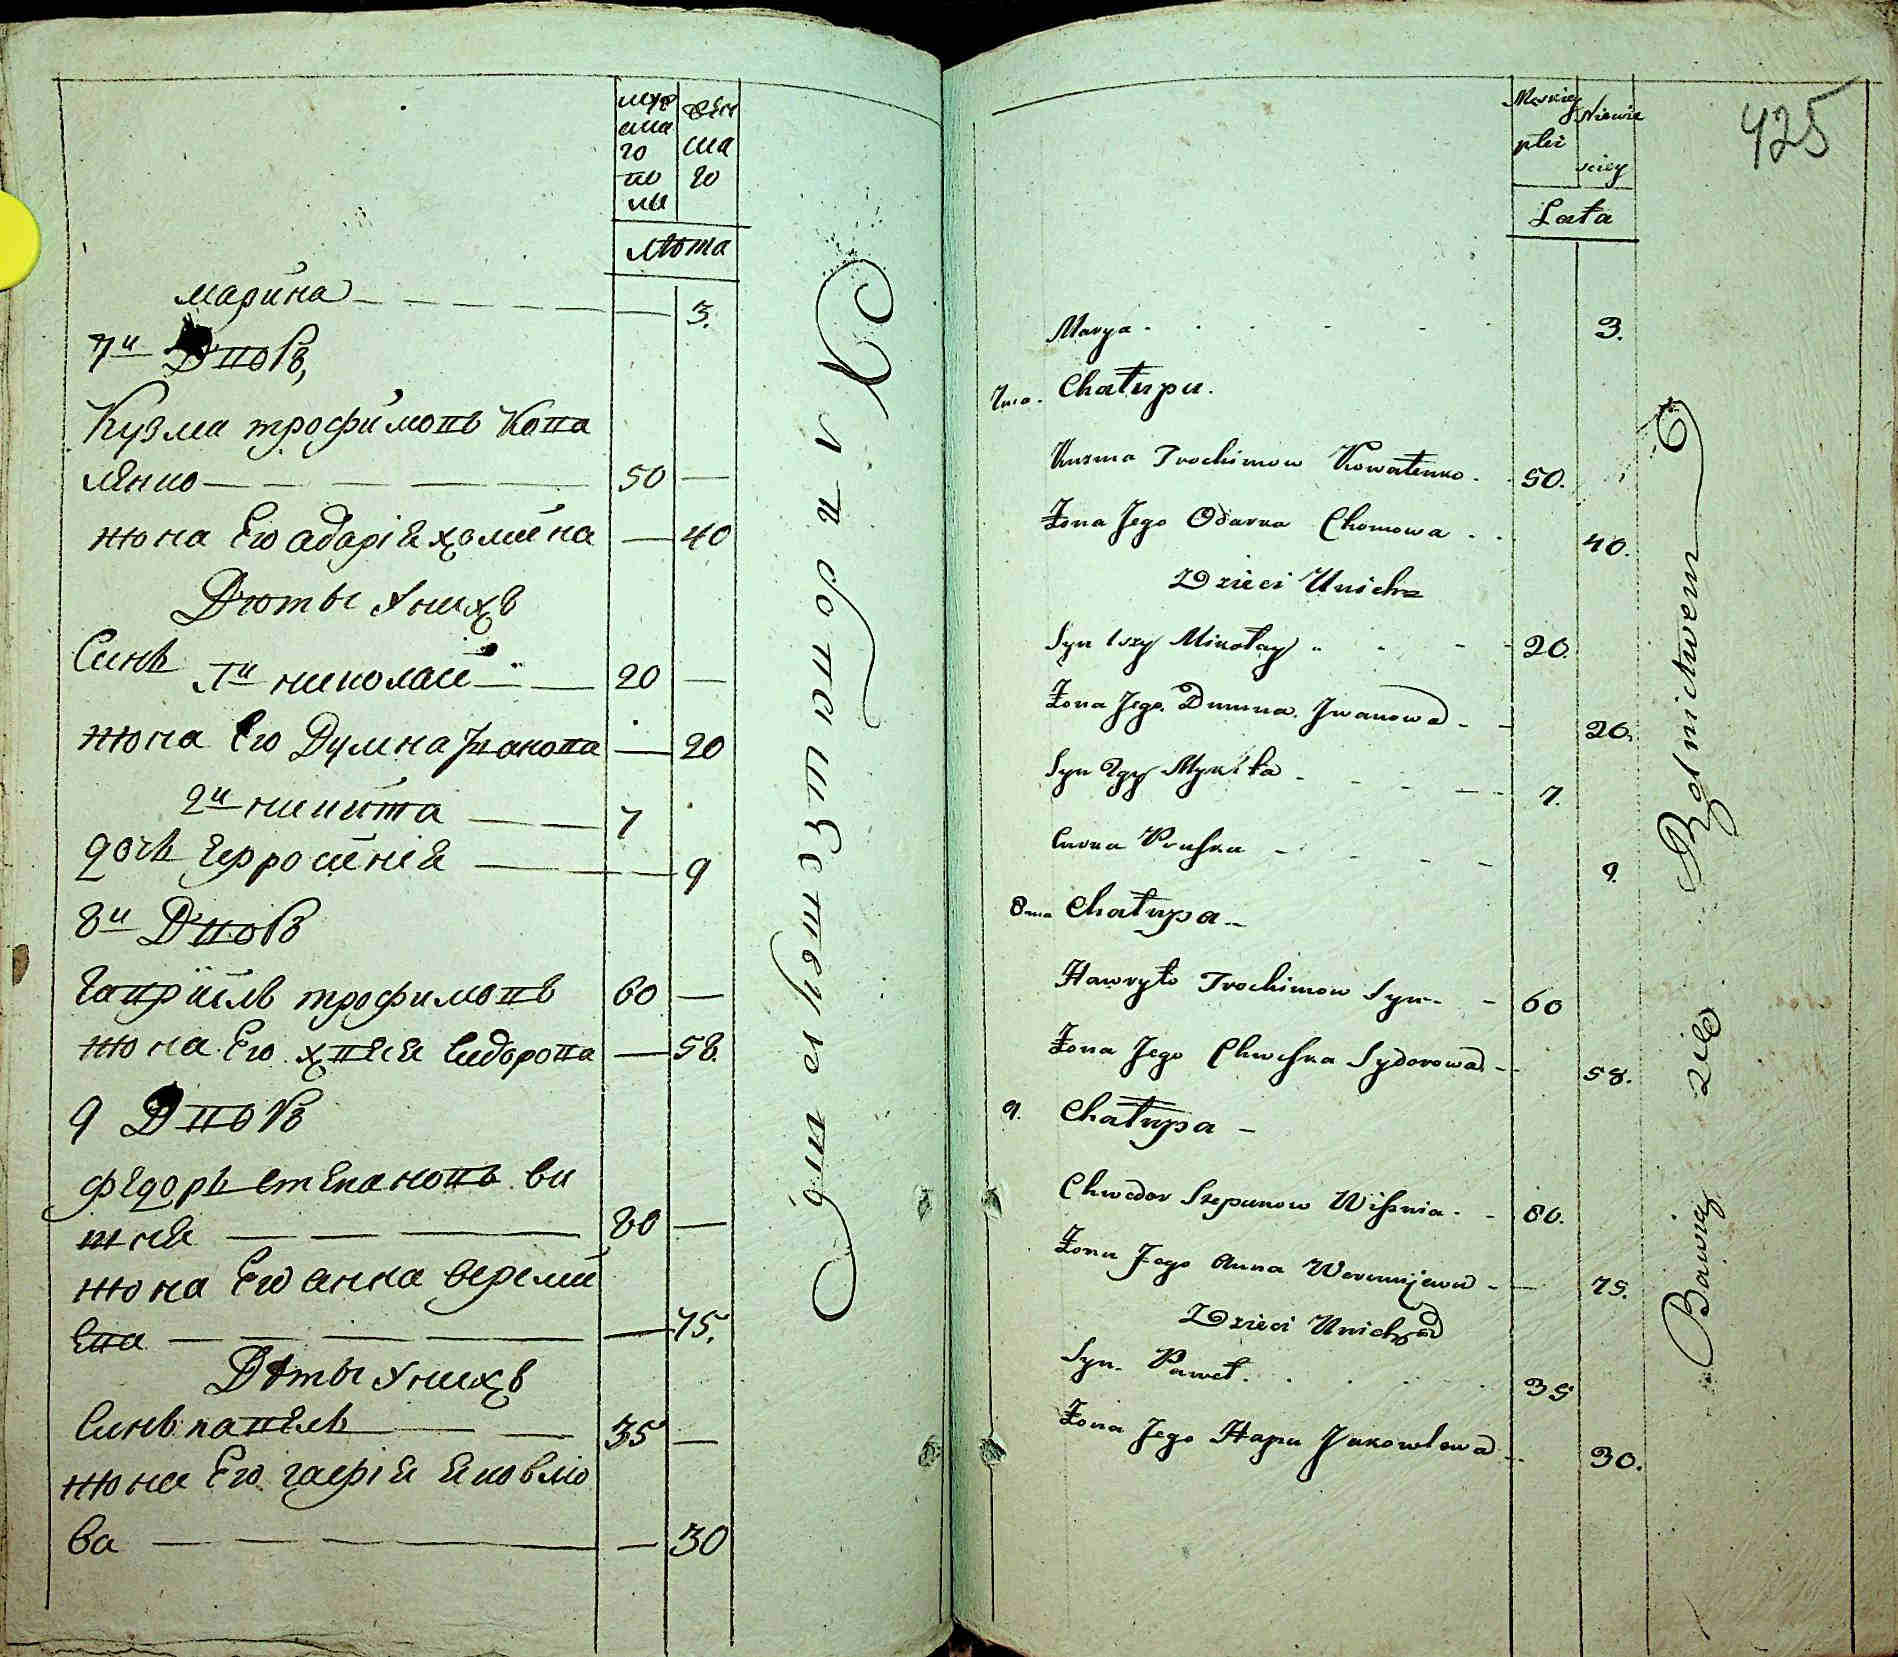 муж
ска
го
по
ла
жен
ска
го
Лѣта
марина 3.
7й Дворъ,
Кузма трофимовъ Кова
ленко 50
жона Его адарія хомина 40
Дѣты у нихъ
Синъ 1й николай 20
жона Его Думна Iванова 20
2й никита 7
дочь Ефросинія 9
8й Дворъ
Гавриілъ трофимовъ 60
жона Его хвеся Сидорова 58.
9 Дворъ
федоръ степановъ ви
шня 80
жона Его анна вереми
ева 75.
Дѣты у нихъ
Синъ павелъ 35
жона Его гапія Яковлю
ва 30
Męskiey
płci
Niewie
sciey
Lata
425
Marya 3.
7ma. Chałupa.
Kuzma Trochimow Kowalenko 50.
Żona Jego Odarka Chomowa 40.
Dzieci Unich
Syn 1szy Mikołay 20.
Żona Jego Dumna Jwanowa 20.
Syn 2gy Mykita 7.
Curka Pruska 9.
8ma Chałupa
Hawryło Trochimow Syn 60
Żona Jego Chweska Sydorowa 58.
9. Chałupa
Chwedor Stepanow Wisznia 80.
Żona Jego Anna Weremijewa 75.
Dzieci Unich
Syn Paweł 35
Żona Jego Hapa Jakowlowa 30.
Bawią się Rolnictwem